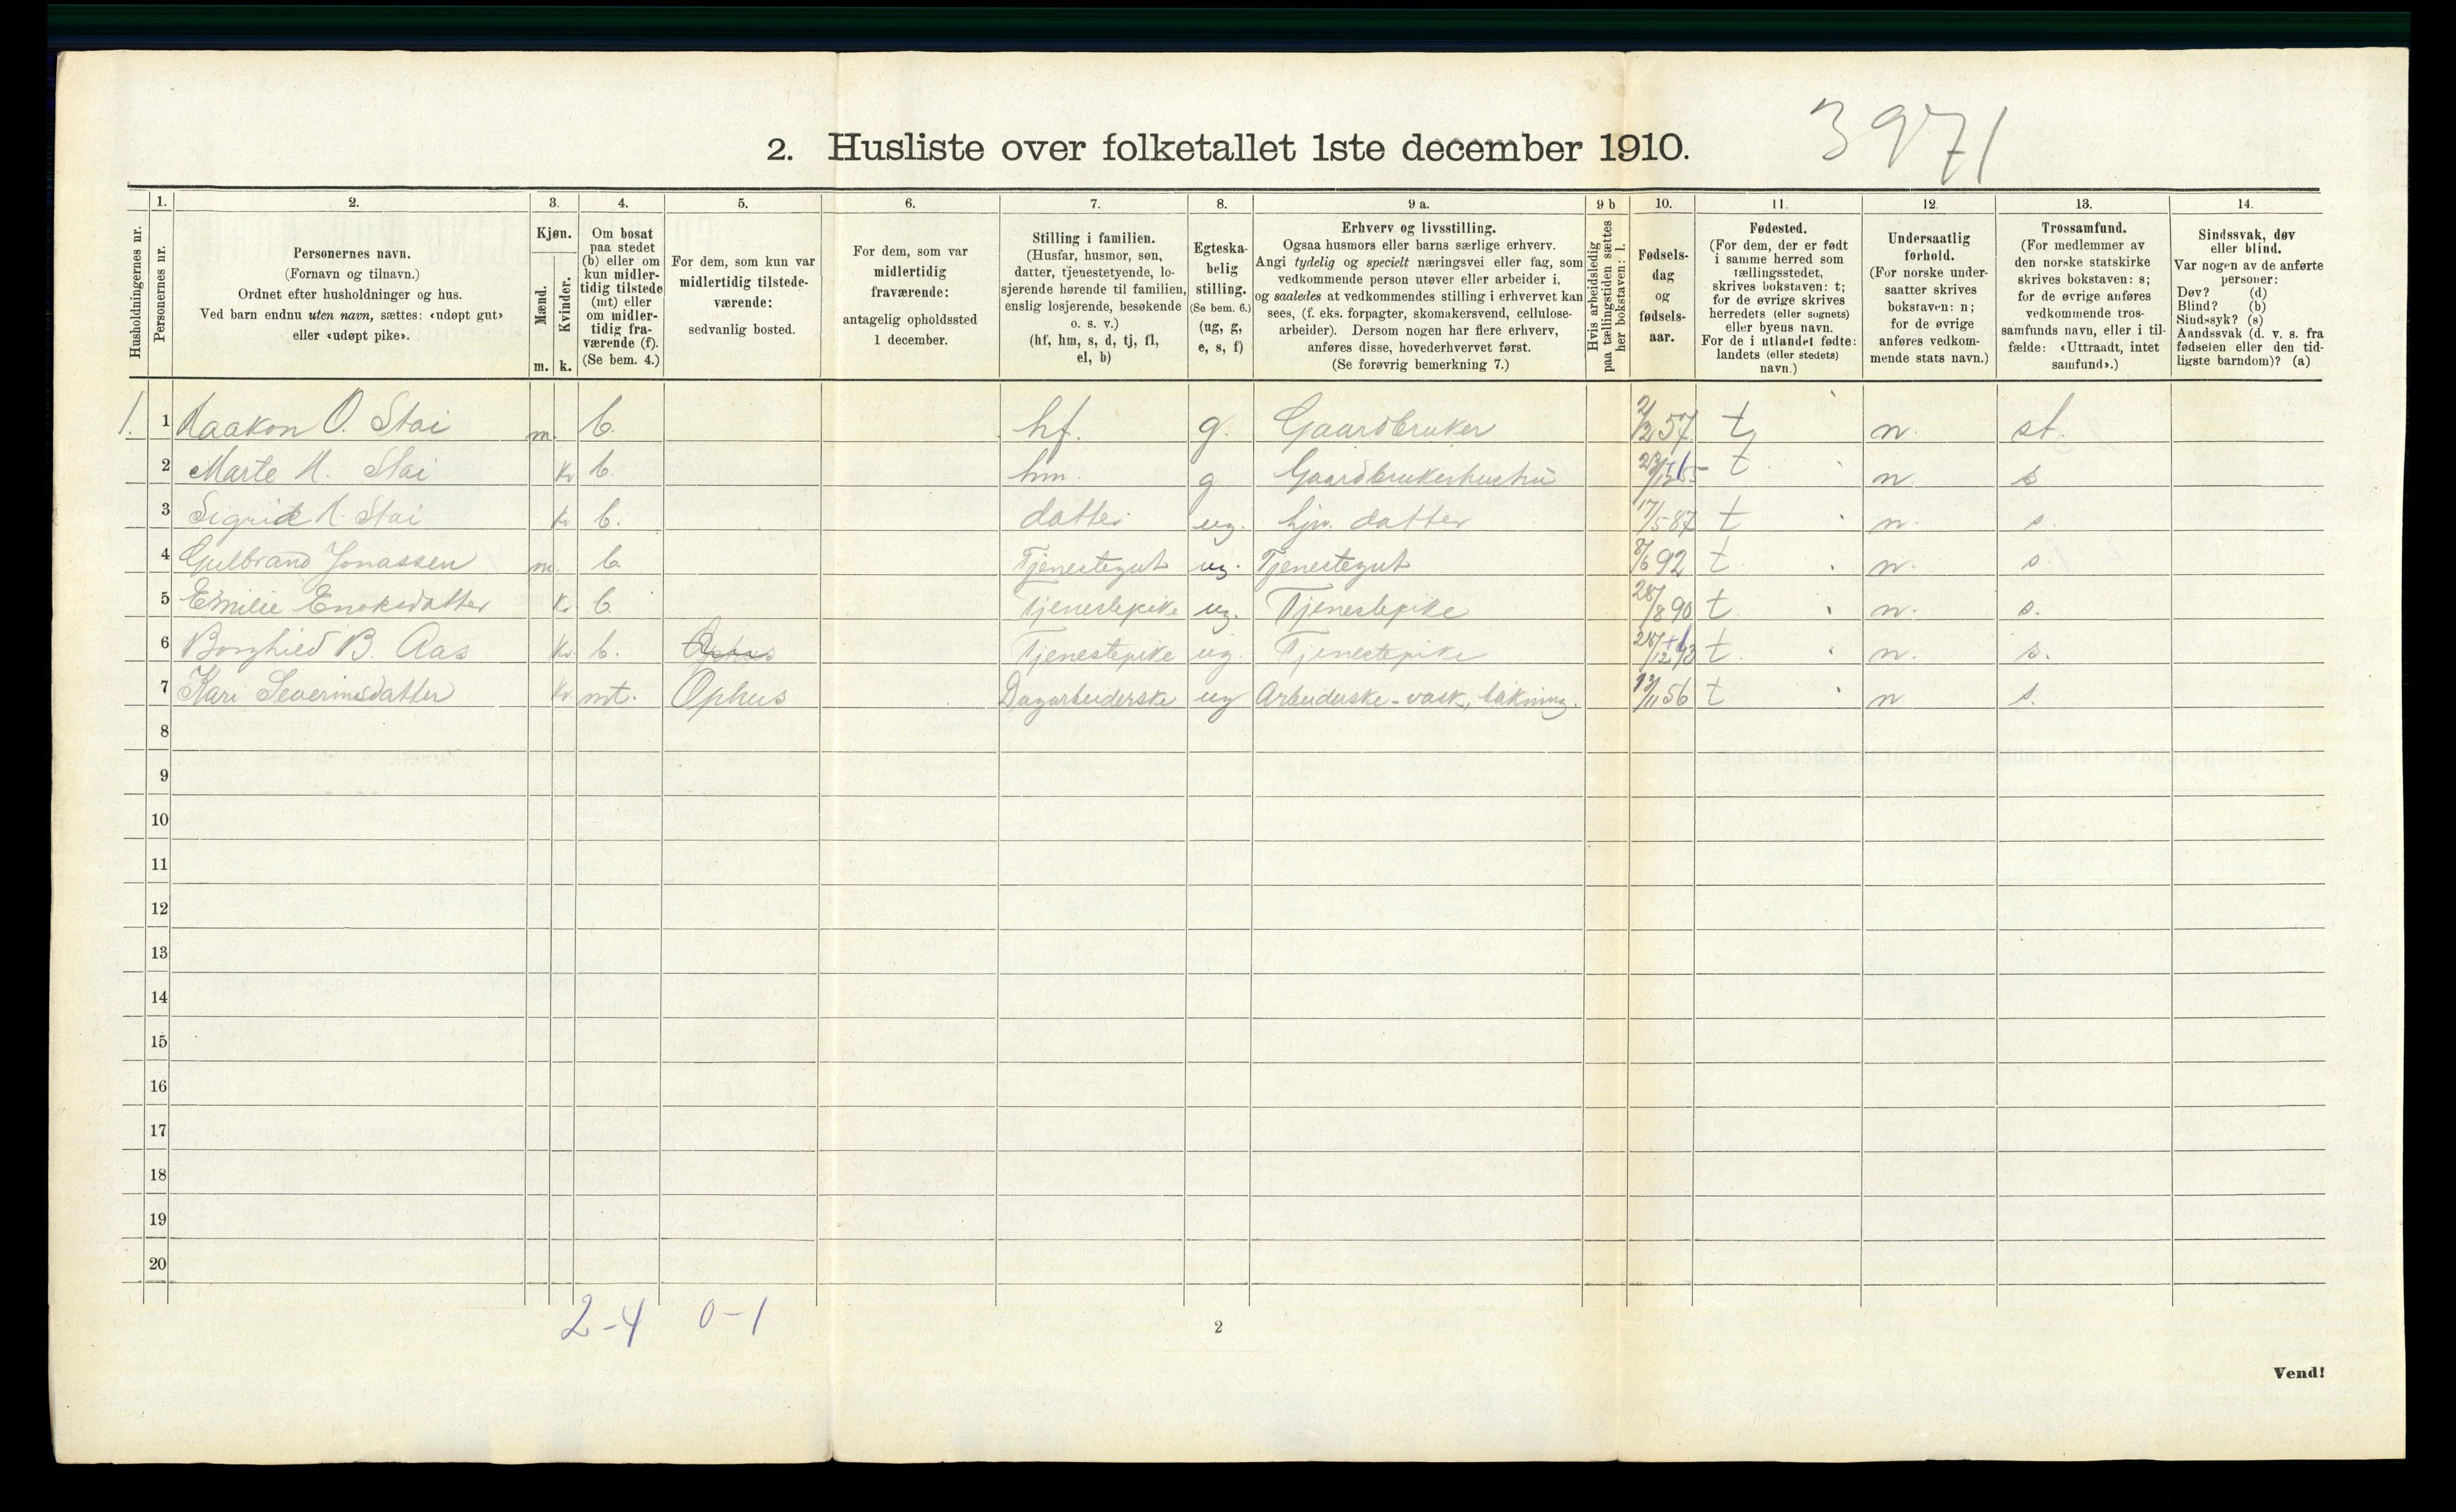 3971
2. Husliste over folketallet 1ste december 1910.
Husholdningernes nr.
1.
Personernes nr.
2.
Personernes navn.
(Fornavn og tilnavn.)
Ordnet efter husholdninger og hus.
Ved barn endnu uten navn, sættes: «udøpt gut»
eller «udøpt pike».
3.
Kjøn.
Mænd.
m.
Kvinder.
k.
4.
Om bosat
paa stedet
(b) eller om
kun midler-
tidig tilstede
(mt) eller
om midler-
tidig fra-
værende (f).
(Se bem. 4.)
5.
For dem, som kun var
midlertidig tilstede-
værende:
sedvanlig bosted.
6.
For dem, som var
midlertidig
fraværende:
antagelig opholdssted
1 december.
7.
Stilling i familien.
(Husfar, husmor, søn,
datter, tjenestetyende, lo-
sjerende hørende til familien,
enslig losjerende, besøkende
o. s. v.)
(hf, hm, s, d, tj, fl,
el, b)
8.
Egteska-
belig
stilling.
(Se bem. 6.)
(ug, g,
e, s, f)
9 a.
Erhverv og livsstilling.
Ogsaa husmors eller barns særlige erhverv.
Angi tydelig og specielt næringsvei eller fag, som
vedkommende person utøver eller arbeider i,
og saaledes at vedkommendes stilling i erhvervet kan
sees, (f. eks. forpagter, skomakersvend, cellulose-
arbeider). Dersom nogen har flere erhverv,
anføres disse, hovederhvervet først.
(Se forøvrig bemerkning 7.)
9 b
Hvis arbeidsledig
paa tællingstiden sættes
her bokstaven: l.
10.
Fødsels-
dag
og
fødsels-
aar.
11.
Fødested.
(For dem, der er født
i samme herred som
tællingsstedet,
skrives bokstaven: t;
for de øvrige skrives
herredets (eller sognets)
eller byens navn.
For de i utlandet fødte:
landets (eller stedets)
navn.)
12.
Undersaatlig
forhold.
(For norske under-
saatter skrives
bokstaven: n;
for de øvrige
anføres vedkom-
mende stats navn.)
13.
Trossamfund.
(For medlemmer av
den norske statskirke
skrives bokstaven: s;
for de øvrige anføres
vedkommende tros-
samfunds navn, eller i til-
fælde: «Uttraadt, intet
samfund».)
14.
Sindssvak, døv
eller blind.
Var nogen av de anførte
personer:
Døv? (d)
Blind? (b)
Sindssyk? (s)
Aandssvak (d. v. s. fra
fødselen eller den tid-
ligste barndom)? (a)
1. 1 Haakon O. Stai m. b. hf. g. Gaardbruker 2/2 57 t n. st.
2 Marte H. Stai Kv b. hm. g Gaardbrukerhustru t. n. s
3 Sigrid H. Stai Kv b. datter ug. hjv. datter 17/5-87 t n. s.
4 Gulbrand Jonassen m. b. Tjenestegut ug. Tjenestegut 8/6 92 t. n. s.
5 Emilie Enoksdatter Kv b. Tjenestepike ug. Tjenestepike 28/8 90 t. n. s.
6 Borghild B. Aas Kv. b. Ophus Tjenestepike ug. Tjenestepike t. n. s.
7 Kari Severinsdatter Kv mt. Ophus Dagarbeiderske ug Arbeiderske-vask, bakning. 13/11 56 t n s.
8
9
10
11
12
13
14
15
16
17
18
19
20
2-4 0-1
2
Vend!